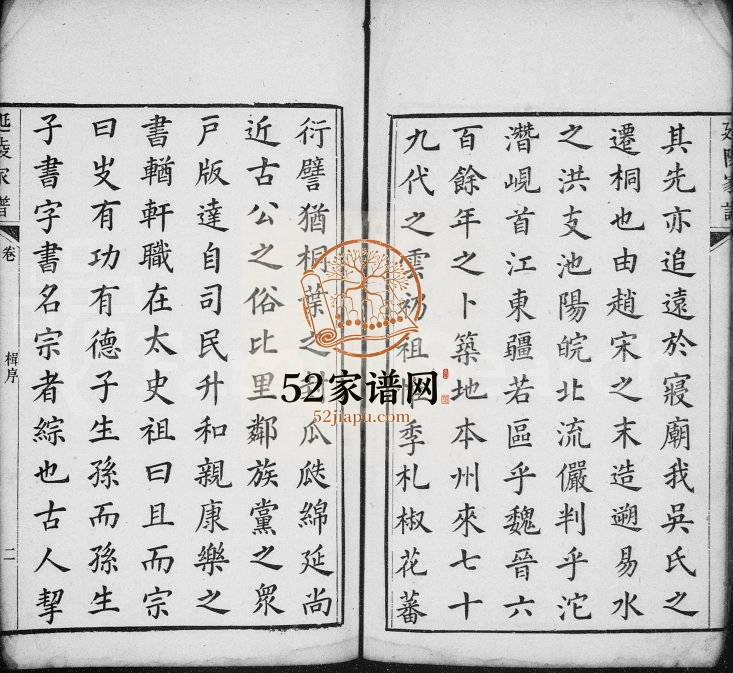 其先亦追遠於寢廟我吳氏之
遷桐也由趙宋之末造遡易水
之洪支池陽皖北流儼判乎沱
潛峴首江東疆若區乎魏晉六
百餘年之卜築地本州來七十
九代之雲礽祖季札椒花蕃
衍譬猶桐葉之瓜瓞綿延尚
近古公之俗比里鄰族黨之眾
戸版達自司民升和親康樂之
書輶軒職在太史祖曰且而宗
曰叏有功有德子生孫而孫生
子書字書名宗者綜也古人挈
延陵家譜
卷
楫序
二
52家谱网
52jiapu.com